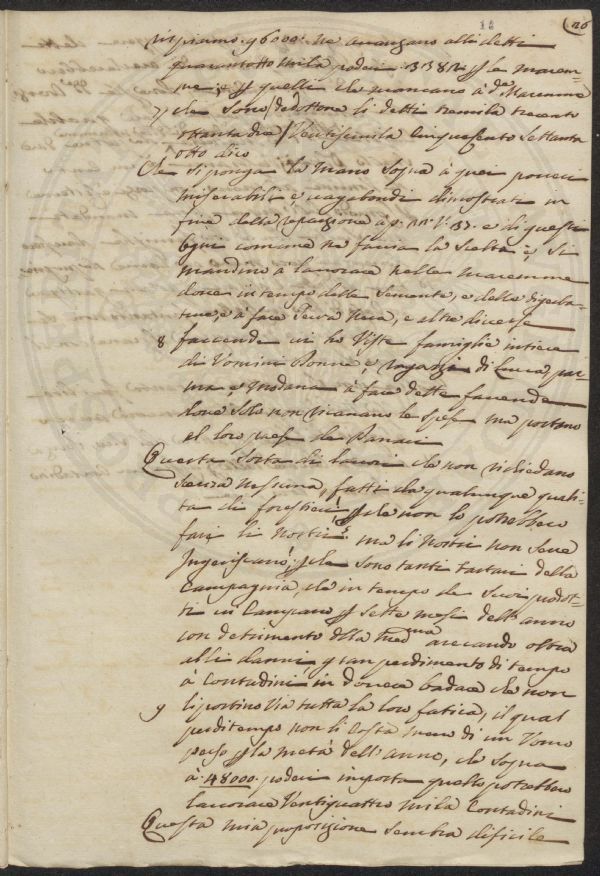 12
126
rispiarmo. 96000: ne avanzano alli detti
quarantotto mila poderi 33822 p la marem-
me, e p quelli che mancano à dte Maremme
7 che sono / dedottone li detti tremila trecento
ottantadua / Ventiseimila Cinquecento Settanta
otto dico
Che si ponga la mano sopra à quei poveri
miserabili e vagabondi dimostrati in
fine della e di questi
ogni comune ne faccia la scelta e si
mandino à lavorare nelle maremme
dove in tempo delle semente, e delle
ture, e à fare terra nera, e altre diverse
8 faccende vi ho viste famiglie intiere
di Uomini Donne e ragazzi di Lucca par-
ma e modana à fare dette faccende
dove solo non ricavano le spese ma portano
al loro paese de Danari
Questa sorta di lavori che non richiedano
scenza nessuna, fatti da qualunque quali-
tà di forestieri, p che non lo potrebbero
fare li nostri? ma li nostri non se ne
ingeriscano! p che sono tanti tartari della
Campagnia, che in tempo de
ti in Campano p sette mesi dell'anno
con detrimento della arecando oltre
alli danni, gran perdimento di tempo
à Contadini in dovere badare che non
9 li portino via tutta la loro fatica, il qual
perditempo non li costa meno di un Uomo
perso p la metà dell'anno, che sopra
à 48000 poderi importa quello potrebbero
lavorare Ventiquattro mila Contadini
Questa mia proposizione sembra dificile